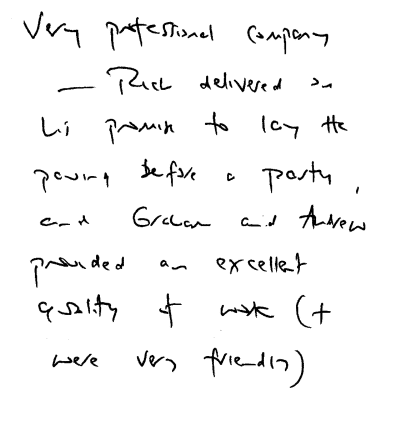 Very professional company
— Rich delivered on
his promise to lay the
paving before a party,
and Graham and Andrew
provided an excellent
quality of work (+
were very friendly)